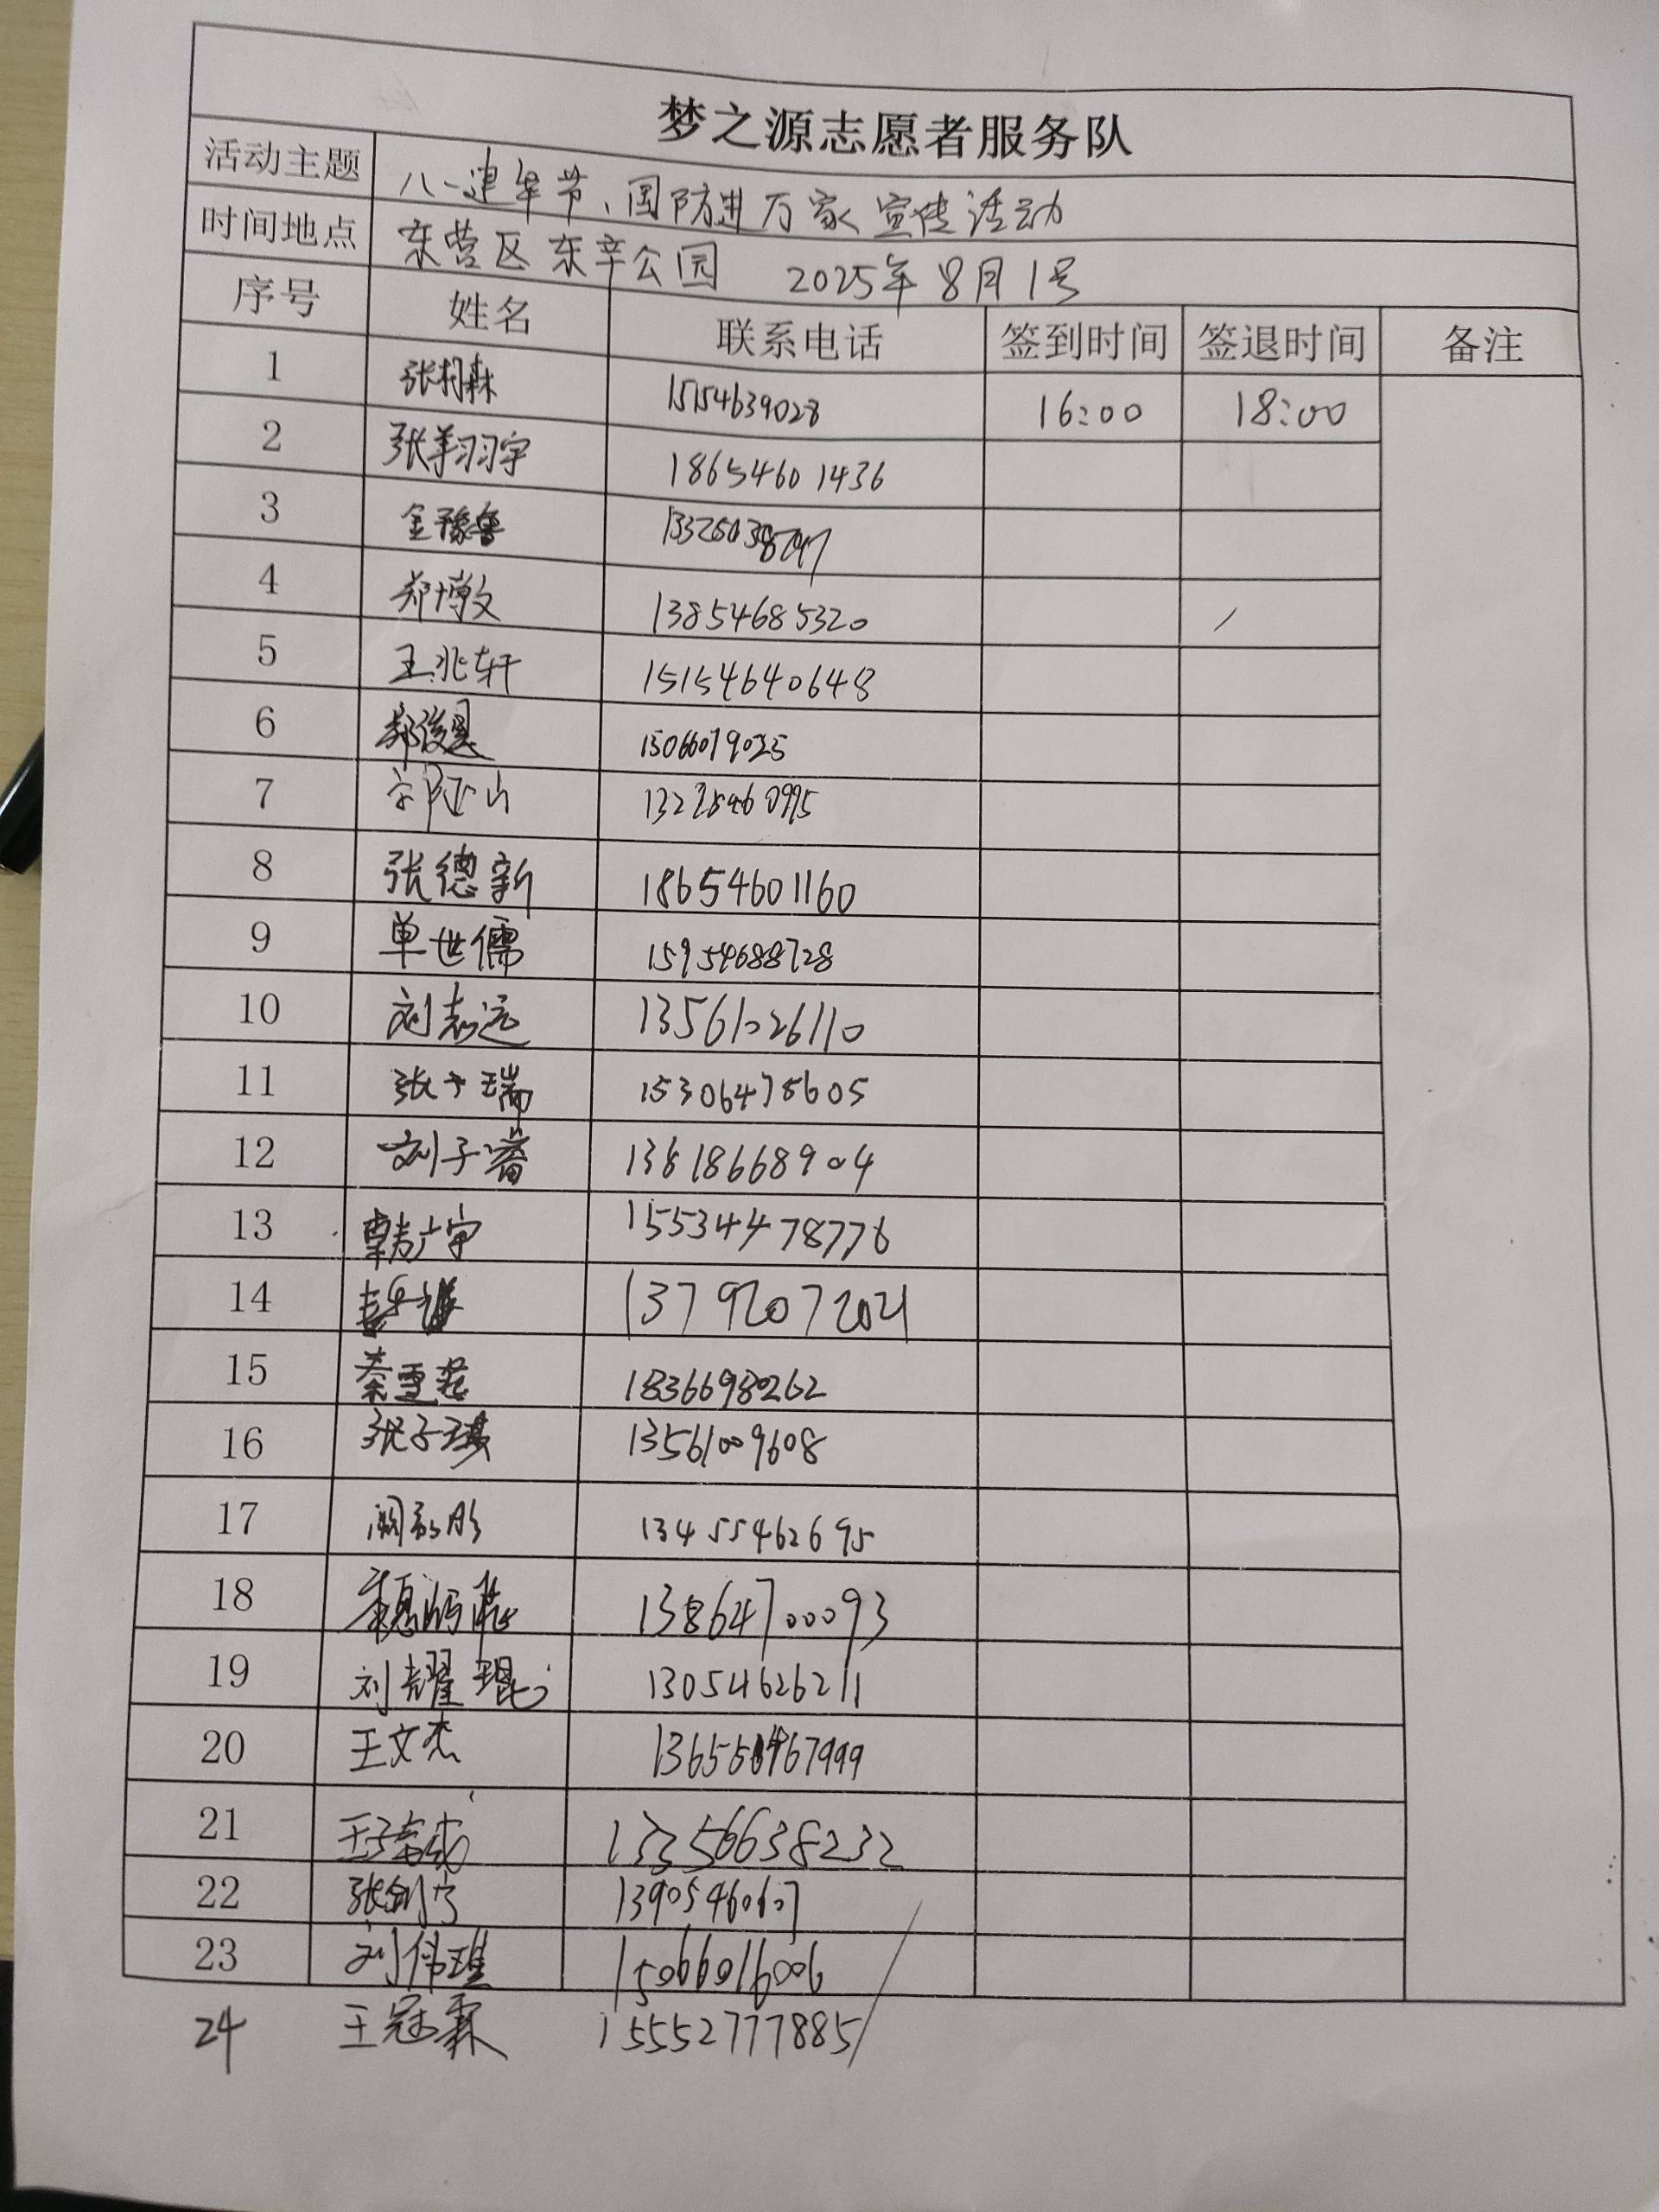 梦之源志愿者服务队
活动主题 八一建军节、国防进万家宣传活动
时间地点 东营区东辛公园 2025年8月1号
序号 姓名 联系电话 签到时间 签退时间 备注
1 张利森 15154639028 16:00 18:00
2 张翔羽宇 18654601436
3 金豫鲁
4 郑博文 13854685320
5 王兆轩 15154640648
6 15066079025
7
8 张德新 18654601160
9 单世儒 15954688728
10 刘志远 13561026110
11 张子瑞 15306478605
12 刘子 13818668904
13 韩广宇 15534478776
14 13792072021
15 秦雪莲 18366980262
16 张子琪 13561009608
17 13455462695
18 13864700093
19 刘耀琨 13054626211
20 王文杰
21 13356638232
22 张剑宁 13905460607
23 刘伟 15066016006
24 王冠霖 15552777885